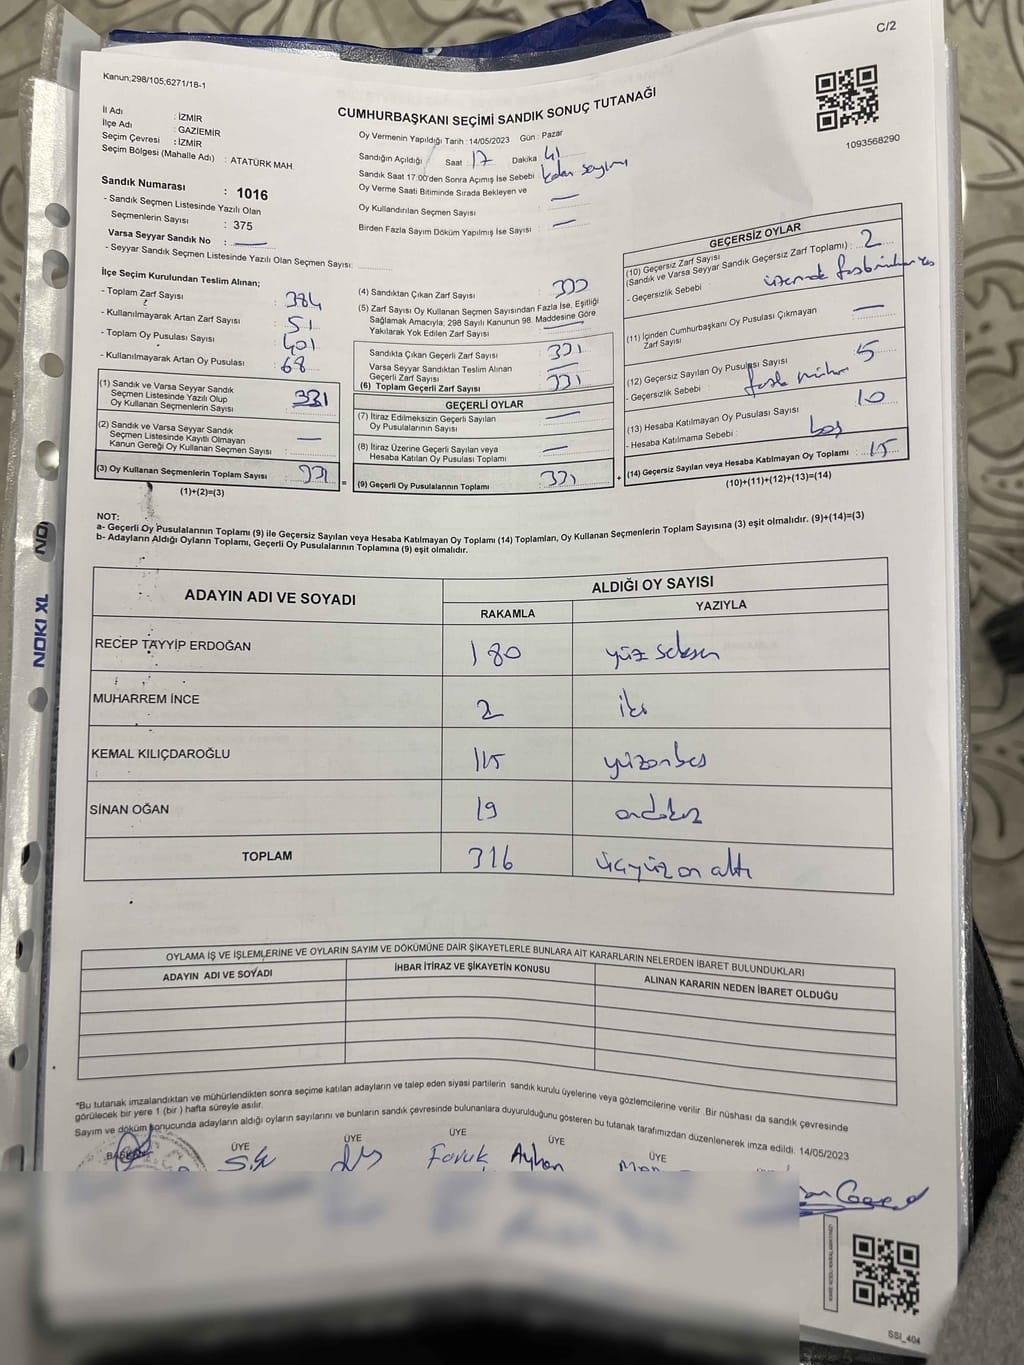 C/2
Kanun;298/105;6271/18-1
CUMHURBAŞKANI SEÇİMİ SANDIK SONUÇ TUTANAĞI
1093568290
İl Adı : İZMİR
İlçe Adı : GAZİEMİR
Seçim Çevresi : İZMİR
Seçim Bölgesi (Mahalle Adı) : ATATÜRK MAH.
Sandık Numarası : 1016
- Sandık Seçmen Listesinde Yazılı Olan
Seçmenlerin Sayısı : 375
Varsa Seyyar Sandık No :
- Seyyar Sandık Seçmen Listesinde Yazılı Olan Seçmen Sayısı:
Oy Vermenin Yapıldığı Tarih :14/05/2023 Gün : Pazar
Sandığın Açıldığı Saat 17 Dakika 41
Sandık Saat 17:00'den Sonra Açımış İse Sebebi sayımı
Oy Verme Saati Bitiminde Sırada Bekleyen ve
Oy Kullandırılan Seçmen Sayısı
Birden Fazla Sayım Döküm Yapılmış İse Sayısı :
İlçe Seçim Kurulundan Teslim Alınan;
- Toplam Zarf Sayısı : 384
- Kullanılmayarak Artan Zarf Sayısı : 51
- Toplam Oy Pusulası Sayısı : 401
- Kullanılmayarak Artan Oy Pusulası : 68
(1) Sandık ve Varsa Seyyar Sandık
Seçmen Listesinde Yazılı Olup
Oy Kullanan Seçmenlerin Sayısı : 331
(2) Sandık ve Varsa Seyyar Sandık
Seçmen Listesinde Kayıtlı Olmayan
Kanun Gereği Oy Kullanan Seçmen Sayısı :
(3) Oy Kullanan Seçmenlerin Toplam Sayısı : 331
(1)+(2)=(3)
(4) Sandıktan Çıkan Zarf Sayısı : 333
(5) Zarf Sayısı Oy Kullanan Seçmen Sayısından Fazla İse, Eşitliği
Sağlamak Amacıyla; 298 Sayılı Kanunun 98. Maddesine Göre
Yakılarak Yok Edilen Zarf Sayısı :
Sandıkta Çıkan Geçerli Zarf Sayısı : 331
Varsa Seyyar Sandıktan Teslim Alınan
Geçerli Zarf Sayısı :
(6) Toplam Geçerli Zarf Sayısı : 331
GEÇERLİ OYLAR
(7) İtiraz Edilmeksizin Geçerli Sayılan
Oy Pusulalarının Sayısı :
(8) İtiraz Üzerine Geçerli Sayılan veya
Hesaba Katılan Oy Pusulası Toplamı :
(9) Geçerli Oy Pusulalarının Toplamı : 331
GEÇERSİZ OYLAR
(10) Geçersiz Zarf Sayısı
(Sandık ve Varsa Seyyar Sandık Geçersiz Zarf Toplamı) : 2
- Geçersizlik Sebebi : üzerinde
(11) İçinden Cumhurbaşkanı Oy Pusulası Çıkmayan
Zarf Sayısı :
(12) Geçersiz Sayılan Oy Pusulası Sayısı : 5
- Geçersizlik Sebebi : fazla mühür
(13) Hesaba Katılmayan Oy Pusulası Sayısı : 10
- Hesaba Katılmama Sebebi : boş
(14) Geçersiz Sayılan veya Hesaba Katılmayan Oy Toplamı : 15
(10)+(11)+(12)+(13)=(14)
NOT:
a- Geçerli Oy Pusulalarının Toplamı (9) ile Geçersiz Sayılan veya Hesaba Katılmayan Oy Toplamı (14) Toplamları, Oy Kullanan Seçmenlerin Toplam Sayısına (3) eşit olmalıdır. (9)+(14)=(3)
b- Adayların Aldığı Oyların Toplamı, Geçerli Oy Pusulalarının Toplamına (9) eşit olmalıdır.
ADAYIN ADI VE SOYADI ALDIĞI OY SAYISI
RAKAMLA YAZIYLA
RECEP TAYYİP ERDOĞAN 180 yüz seksen
MUHARREM İNCE 2 iki
KEMAL KILIÇDAROĞLU 115 yüzonbeş
SİNAN OĞAN 19 ondokuz
TOPLAM 316 üçyüz on altı
OYLAMA İŞ VE İŞLEMLERİNE VE OYLARIN SAYIM VE DÖKÜMÜNE DAİR ŞİKAYETLERLE BUNLARA AİT KARARLARIN NELERDEN İBARET BULUNDUKLARI
ADAYIN ADI VE SOYADI İHBAR İTİRAZ VE ŞİKAYETİN KONUSU ALINAN KARARIN NEDEN İBARET OLDUĞU
*Bu tutanak imzalandıktan ve mühürlendikten sonra seçime katılan adayların ve talep eden siyasi partilerin sandık kurulu üyelerine veya gözlemcilerine verilir. Bir nüshası da sandık çevresinde
görülecek bir yere 1 (bir ) hafta süreyle asılır.
Sayım ve döküm sonucunda adayların aldığı oyların sayılarını ve bunların sandık çevresinde bulunanlara duyurulduğunu gösteren bu tutanak tarafımızdan düzenlenerek imza edildi. 14/05/2023
BAŞKAN ÜYE ÜYE ÜYE ÜYE ÜYE
Faruk Ayhan
NOKI XL
NO
SSI_404